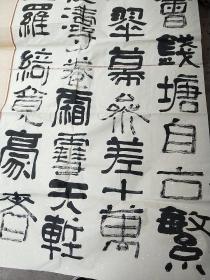 會錢塘自古繁
翠幕參差十萬
濤卷霜雪天塹
羅綺競豪奢